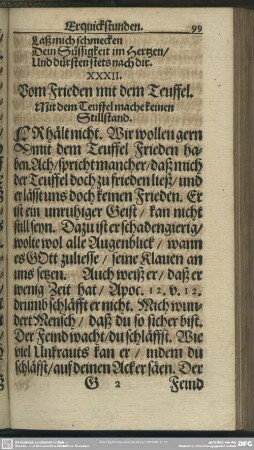 Erquickstunden. 99
Laß mich schmecken
Dein Süssigkeit im Hertzen/
Und dürsten stets nach dir.
XXXII.
Vom Frieden mit dem Teuffel.
Mit dem Teuffel mache keinen
Stillstand.
ER hält nicht. Wir wollen gern
mit dem Teuffel Frieden ha-
ben. Ach/ spricht mancher/ daß mich
der Teuffel doch zu frieden ließ/ und
er läst uns doch keinen Frieden. Er
ist ein unruhiger Geist/ kan nicht
still seyn. Dazu ist er schadengierig/
wolte wol alle Augenblick/ wann
es GOtt zuliesse/ seine Klauen an
uns setzen. Auch weiß er/ daß er
wenig Zeit hat/ Apoc. 12. v. 12.
drumb schläfft er nicht. Mich wun-
dert Mensch/ daß du so sicher bist.
Der Feind wacht/ du schläffst. Wie
viel Unkrauts kan er/ indem du
schläffst/ auf deinen Acker säen. Der
G 2 Feind
DFG